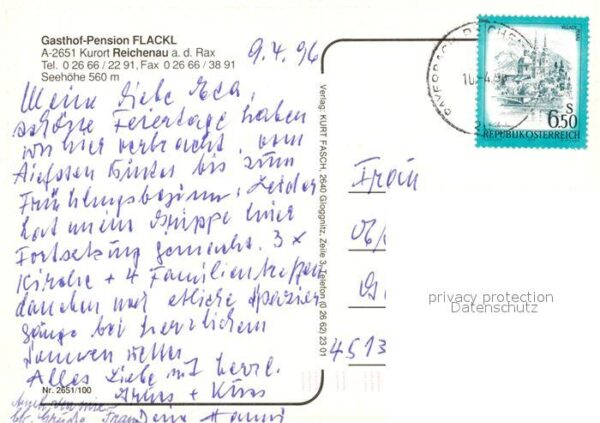 Gasthof-Pension FLACKL
A-2651 Kurort Reichenau a. d. Rax
Tel. 0 26 66 / 22 91, Fax 0 26 66 / 38 91
Seehöhe 560 m
9.4.96
Meine Liebe
schöne Feiertage haben
wir hier verbracht, vom
tiefsten Winter bis zum
Frühlingsbeginn. Leider
hat meine Grippe hier
Fortsetzung gemacht. 3 x
Kirche + 4 Familientreffen
daneben und etliche Spazier
gänge bei herrlichem
Sonnen wetter
Alles Liebe mit herzl.
Gruss + Kuss
Deine Hanni
Nr. 2651/100
Verlag: KURT FASCH, 2640 Gloggnitz, Zeile 3, Telefon (0 26 62) 23 01
S
6.50
REPUBLIK ÖSTERREICH
Frau
4513
privacy protection
Datenschutz